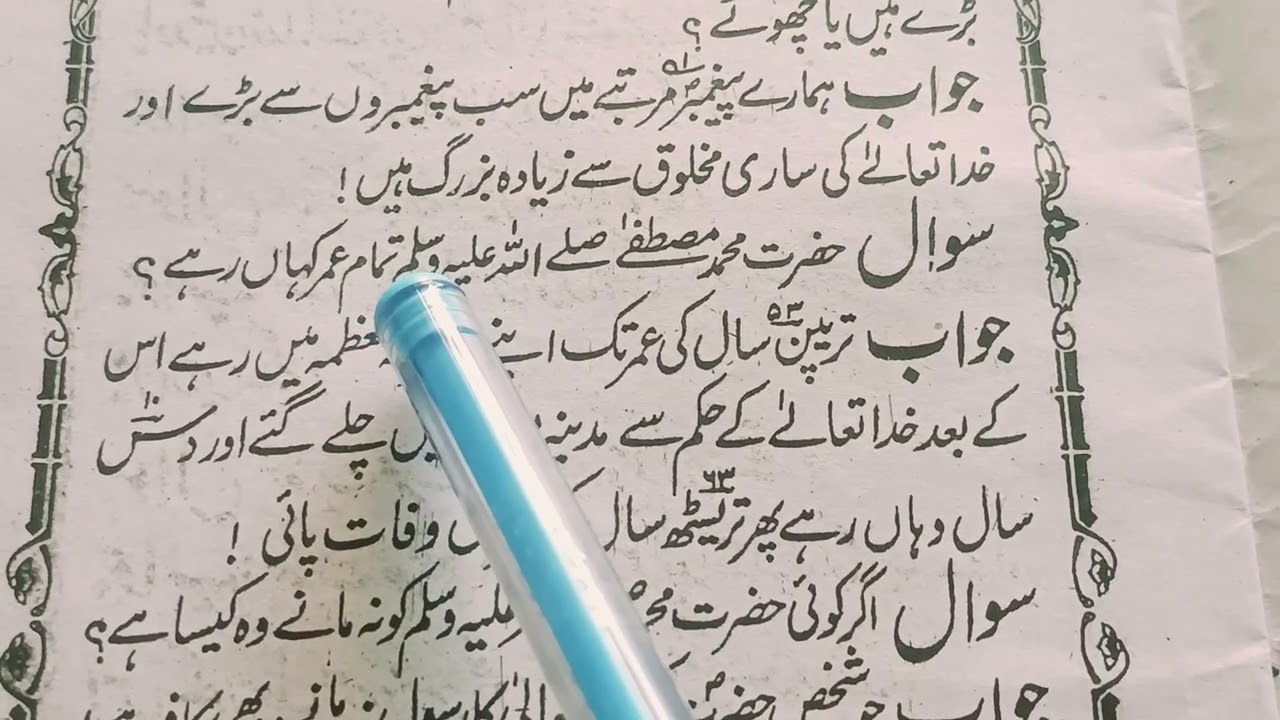 بڑے ہیں یا چھوٹے ؟
جواب ہمارے پیغمبرؐ مرتبے میں سب پیغمبروں سے بڑے اور
خدا تعالےٰ کی ساری مخلوق سے زیادہ بزرگ ہیں !
سوال حضرت محمد مصطفےٰ صلے اللہ علیہ وسلم تمام عمر کہاں رہے ؟
جواب ترپین ۵۳ سال کی عمر تک میں رہے اس
کے بعد خدا تعالےٰ کے حکم سے مدینہ چلے گئے اور دس
سال وہاں رہے پھر تریسٹھ ۶۳ سال وفات پائی !
سوال اگر کوئی حضرت علیہ وسلم کو نہ مانے وہ کیسا ہے ؟
جواب جو شخص حضرت